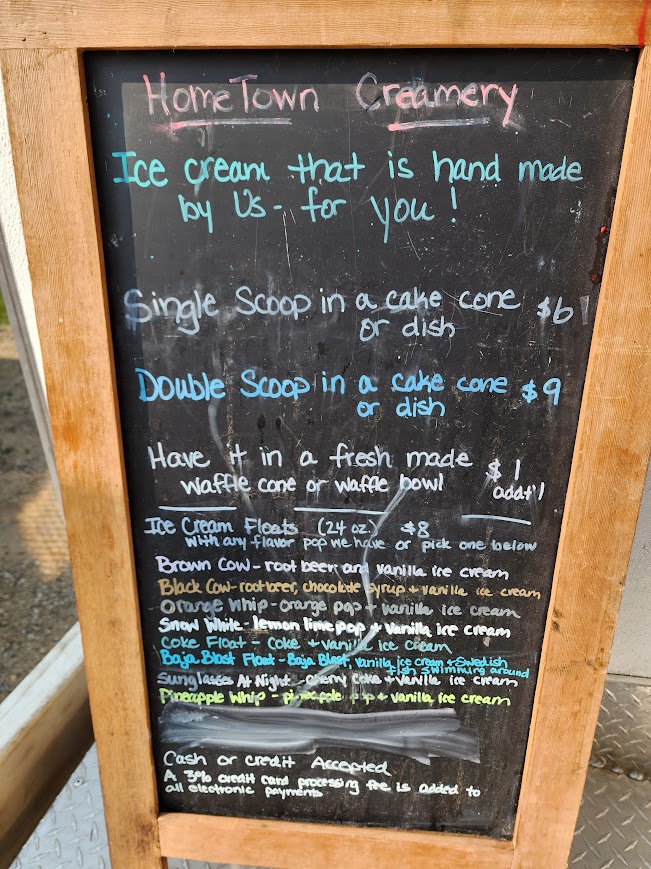 HomeTown Creamery
Ice cream that is hand made
by Us - for you!
Single Scoop in a cake cone $6
or dish
Double Scoop in a cake cone $9
or dish
Have it in a fresh made $1
waffle cone or waffle bowl adat'l
Ice Cream Floats (24 oz.) $8
with any flavor pop we have or pick one below
Brown Cow - root beer and vanilla ice cream
Black Cow - root beer, chocolate syrup + vanilla ice cream
Orange Whip - orange pop + vanilla ice cream
Snow White - lemon lime pop + vanilla ice cream
Coke Float - Coke + vanilla ice cream
Baja Blast Float - Baja Blast, vanilla ice cream + Swedish
fish swimming around
Sunglasses At Night - cherry coke + vanilla ice cream
Pineapple Whip - pineapple pop + vanilla ice cream
Cash or credit Accepted
A 3% credit card processing fee is added to
all electronic payments